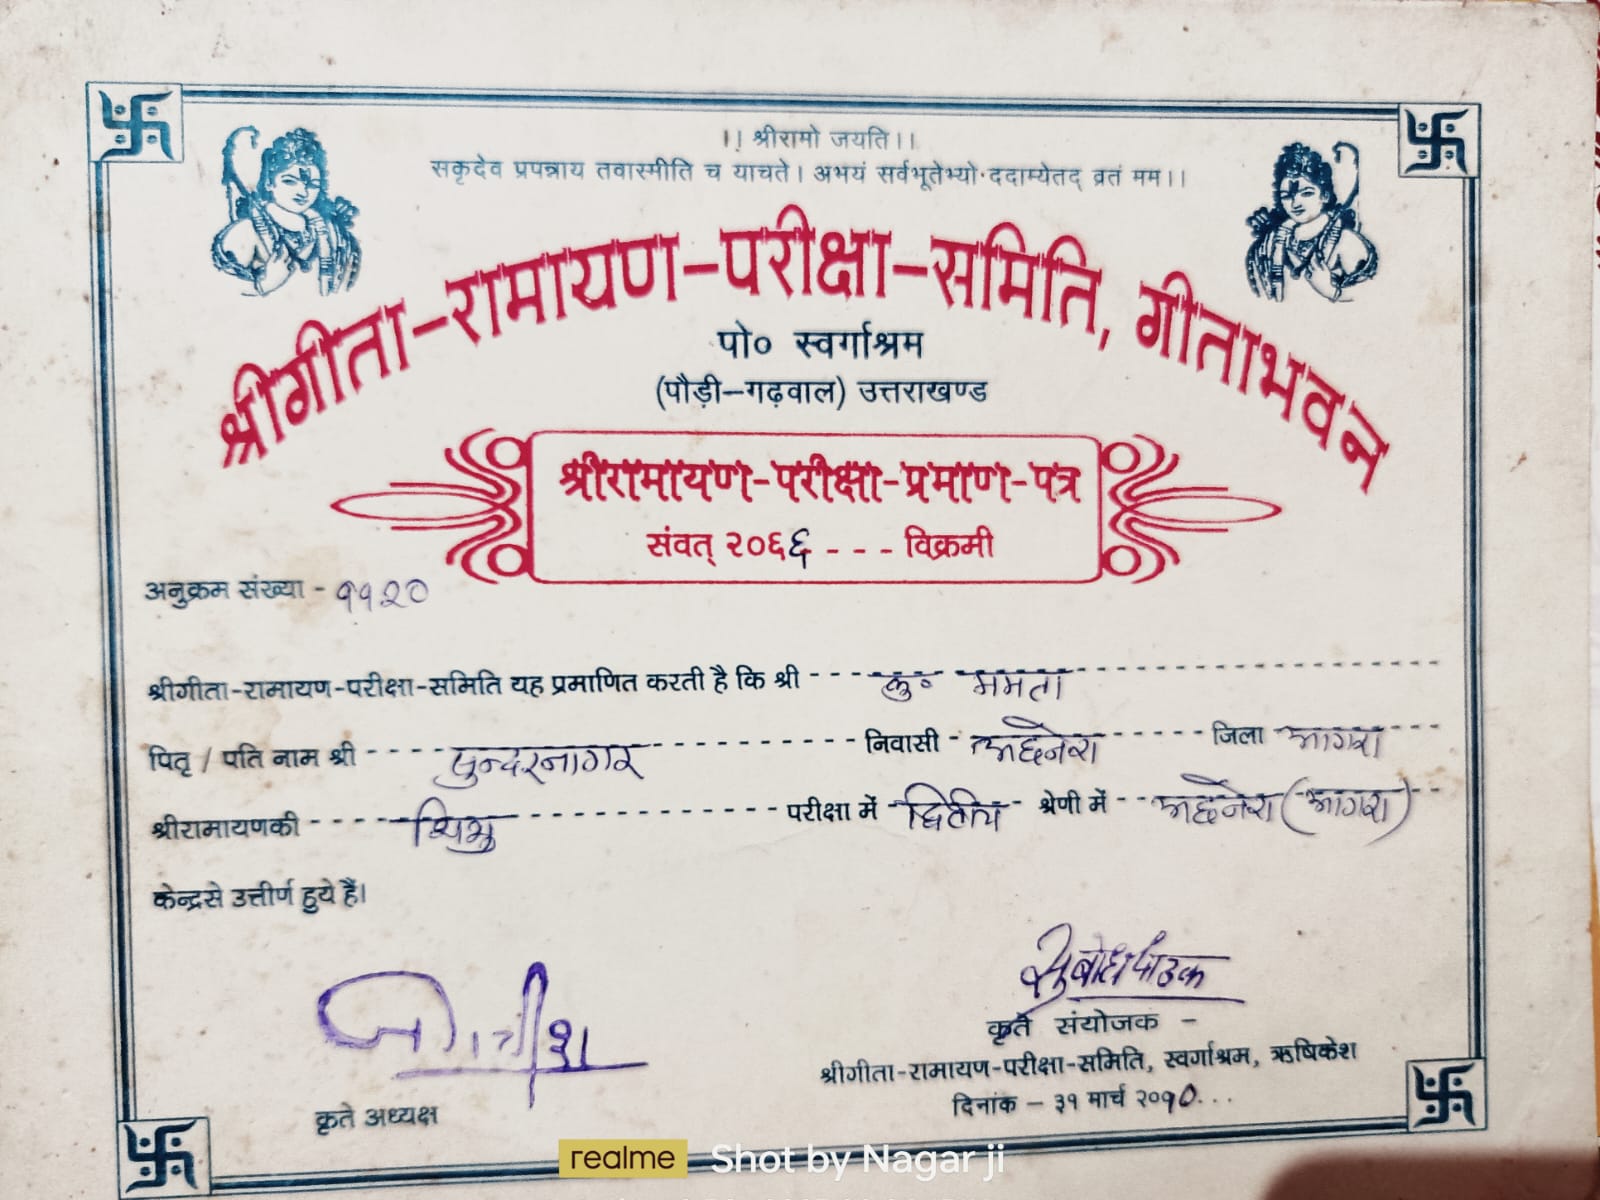 ।। श्रीरामो जयति।।
सकृदेव प्रपन्नाय तवास्मीति च याचते। अभयं सर्वभूतेभ्यो ददाम्येतद् व्रतं मम।।
श्रीगीता-रामायण-परीक्षा-समिति, गीताभवन
पो० स्वर्गाश्रम
(पौड़ी-गढ़वाल) उत्तराखण्ड
श्रीरामायण-परीक्षा-प्रमाण-पत्र
संवत् २०६६ - - - विक्रमी
अनुक्रम संख्या - ११२०
श्रीगीता-रामायण-परीक्षा-समिति यह प्रमाणित करती है कि श्री कु० ममता
पितृ / पति नाम श्री सुन्दरनागर निवासी - अछनेरा जिला आगरा
श्रीरामायणकी शिशु परीक्षा में द्वितीय श्रेणी में अछनेरा (आगरा)
केन्द्रसे उत्तीर्ण हुये हैं।
सुबोध पाठक
कृते संयोजक -
श्रीगीता-रामायण-परीक्षा-समिति, स्वर्गाश्रम, ऋषिकेश
दिनांक - ३१ मार्च २०१०...
कृते अध्यक्ष
realme Shot by Nagar ji